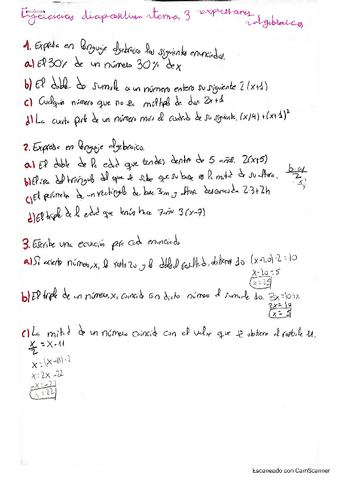 Ejercicios diapositivas tema 3 expresiones algebraicas
1. Expresa en lenguaje algebraico los siguientes enunciados.
a) El 30% de un número 30% de x
b) El doble de sumarle a un número entero su siguiente 2(x+1)
c) Cualquier número que no sea múltiplo de dos 2x+1
d) La cuarta parte de un número más el cuadrado de su siguiente, (x/4)+(x+1)²
2. Expresa en lenguaje algebraico.
a) El doble de la edad que tendrás dentro de 5 años. 2(x+5)
b) El área del triángulo del que se sabe que su base es la mitad de su altura. b·a/2
c) El perímetro de un rectángulo de base 3m y altura desconocida 2·3+2h
d) El triple de la edad que tenía hace 7 años 3(x-7)
3. Escribe una ecuación para cada enunciado
a) Si a cierto número, x, le resto 20 y lo doble el resultado, obtengo 10 (x-20)·2=10
x-20=5
x=25
b) El triple de un número, x, coincide con dicho número al sumarle 10. 3x=10+x
2x=10
x=5
c) La mitad de un número coincide con el valor que se obtiene al restarle 11.
x/2 = x-11
x=(x-11)·2
x=2x-22
-x=-22
x=22
Escaneado con CamScanner